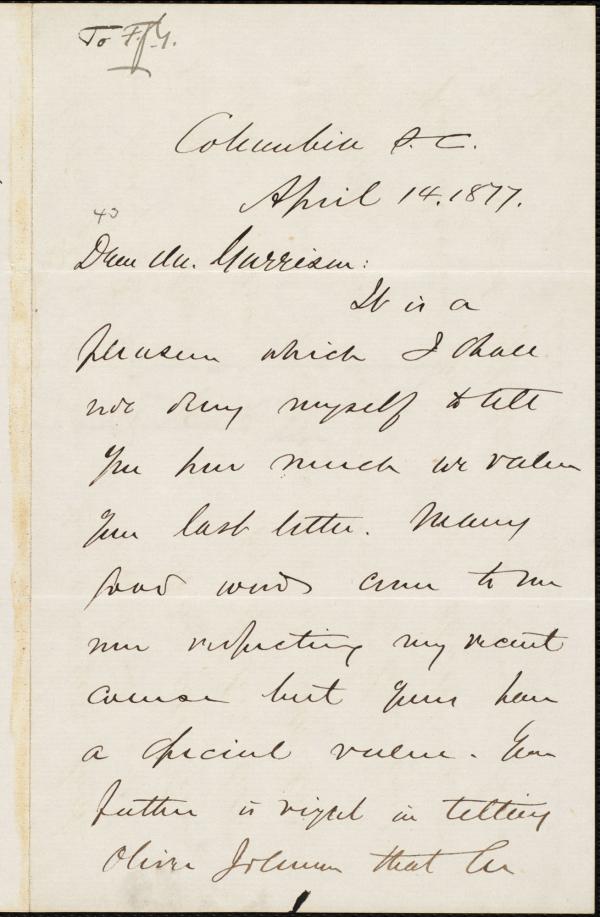 To F.J.G.
Columbia S.C.
April 14. 1877.
40
Dear Mr. Garrison:
It is a
pleasure which I shall
not deny myself to tell
you how much we value
your last letter. Many
good words come to me
now respecting my recent
course but yours have
a special value. Your
father is right in telling
Oliver Johnson that he